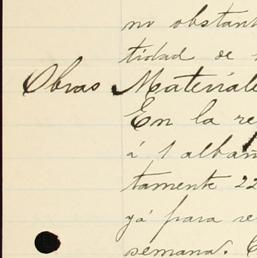 no obstant
tidad de
Obras Materiale
En la re
á 1 albañ
tamente 22
yá para re
semana.